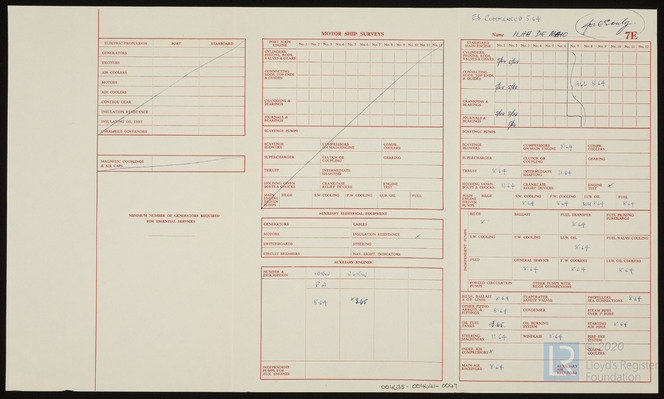 CS Commenced 5.64
MOTOR SHIP SURVEYS
Name. ILHA DE MAIO
7E
ELECTRIC PROPULSION PORT STARBOARD
GENERATORS
EXCITERS
AIR COOLERS
MOTORS
AIR COOLERS
CONTROL GEAR
INSULATION RESISTANCE
INSULATING OIL TEST
OVERSPEED GOVERNORS
MAGNETIC COUPLINGS
& AIR GAPS
MINIMUM NUMBER OF GENERATORS REQUIRED
FOR ESSENTIAL SERVICES
PORT MAIN
ENGINE No. 1 No. 2 No. 3 No. 4 No. 5 No. 6 No. 7 No. 8 No. 9 No. 10 No. 11 No. 12
CYLINDERS,
PISTONS, RODS,
VALVES & GEARS
CONNECTING
RODS, TOP ENDS
& GUIDES
CRANKPINS &
BEARINGS
JOURNALS &
BEARINGS
SCAVENGE PUMPS
SCAVENGE
BLOWERS
COMPRESSORS
ON MAIN ENGINE
COMPR.
COOLERS
SUPERCHARGER
CLUTCH OR
COUPLING
GEARING
THRUST
INTERMEDIATE
SHAFTING
HOLDING DOWN
BOLTS & CHOCKS
CRANKCASE
RELIEF DEVICES
ENGINE
TEST
MAIN
ENGINE
DRIVEN
PUMPS
BILGE
S.W. COOLING
F.W. COOLING
LUB. OIL
FUEL
AUXILIARY ELECTRICAL EQUIPMENT
GENERATORS
CABLES
MOTORS
INSULATION RESISTANCE
SWITCHBOARDS
STEERING
CIRCUIT BREAKERS
NAV. LIGHT INDICATORS
AUXILIARY ENGINES
NUMBER &
DESCRIPTION
P.A.
5.64
INDEPENDENT
PUMPS FOR
AUX. ENGINES
STARBOARD
MAIN ENGINE No. 1 No. 2 No. 3 No. 4 No. 5 No. 6 No. 7 No. 8 No. 9 No. 10 No. 11 No. 12
CYLINDERS,
PISTONS, RODS,
VALVES & GEARS
CONNECTING
RODS, TOP ENDS
& GUIDES
ALL 5.64
CRANKPINS &
BEARINGS
JOURNALS &
BEARINGS
SCAVENGE PUMPS
SCAVENGE
BLOWERS
COMPRESSORS
ON MAIN ENGINE 5.64
COMPR.
COOLERS
SUPERCHARGER
CLUTCH OR
COUPLING
GEARING
THRUST 5.64
INTERMEDIATE
SHAFTING 11.64
HOLDING DOWN
BOLTS & CHOCKS 11.64
CRANKCASE
RELIEF DEVICES
ENGINE
TEST
MAIN
ENGINE
DRIVEN
PUMPS
BILGE
S.W. COOLING 5.64
F.W. COOLING 5.64
LUB. OIL 5.64
FUEL 5.64
INDEPENDENT PUMPS
BILGE
BALLAST
FUEL TRANSFER 5.64
FUEL PRIMING
SURCHARGE
S.W. COOLING
F.W. COOLING
LUB. OIL 5.64
FUEL VALVE COOLING
FEED
GENERAL SERVICE 5.64
F.W. COOLERS 5.64
LUB. OIL COOLERS 5.64
FORCED CIRCULATION
PUMPS
OTHER PUMPS WITH
BILGE CONNECTIONS
BILGE, BALLAST
& O.F. LINES 5.64
EVAPORATOR
SAFETY VALVE
PROPELLERS
SEA CONNECTIONS 5.64
CONDENSER
OIL FUEL
TANKS
OIL BURNING
SYSTEM
STARTING
AIR PIPES 5.64
STEERING
MACHINERY 11.64
WINDLASS 5.64
FIRE EXT.
SYSTEM
INDEP. AIR
COMPRESSORS
COMPR.
COOLERS
MAIN AIR
RECEIVERS 5.64
AUXILIARY
AIR
RECEIVERS
LR
© 2020
Lloyd's Register
Foundation
004635 - 004641 - 0047